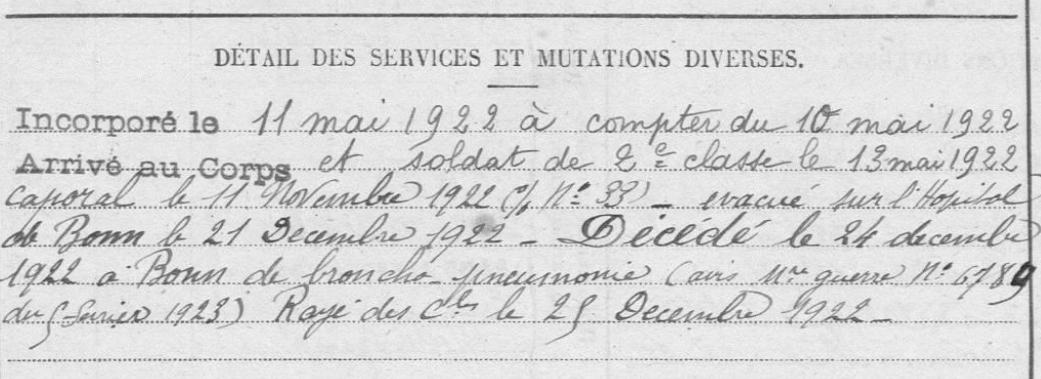 DÉTAIL DES SERVICES ET MUTATIONS DIVERSES.
Incorporé le 11 mai 1922 à compter du 10 mai 1922
Arrivé au Corps et soldat de 2e classe le 13 mai 1922
caporal le 11 Novembre 1922 (O/ No 33) _ evacué sur l'Hopital
de Bonn le 21 Decembre 1922 _ Décédé le 24 decembre
1922 a Bonn de broncho-pneumonie (avis Mre guerre No 6789
du 5 fevrier 1923) Rayé des Cles le 25 Decembre 1922 _